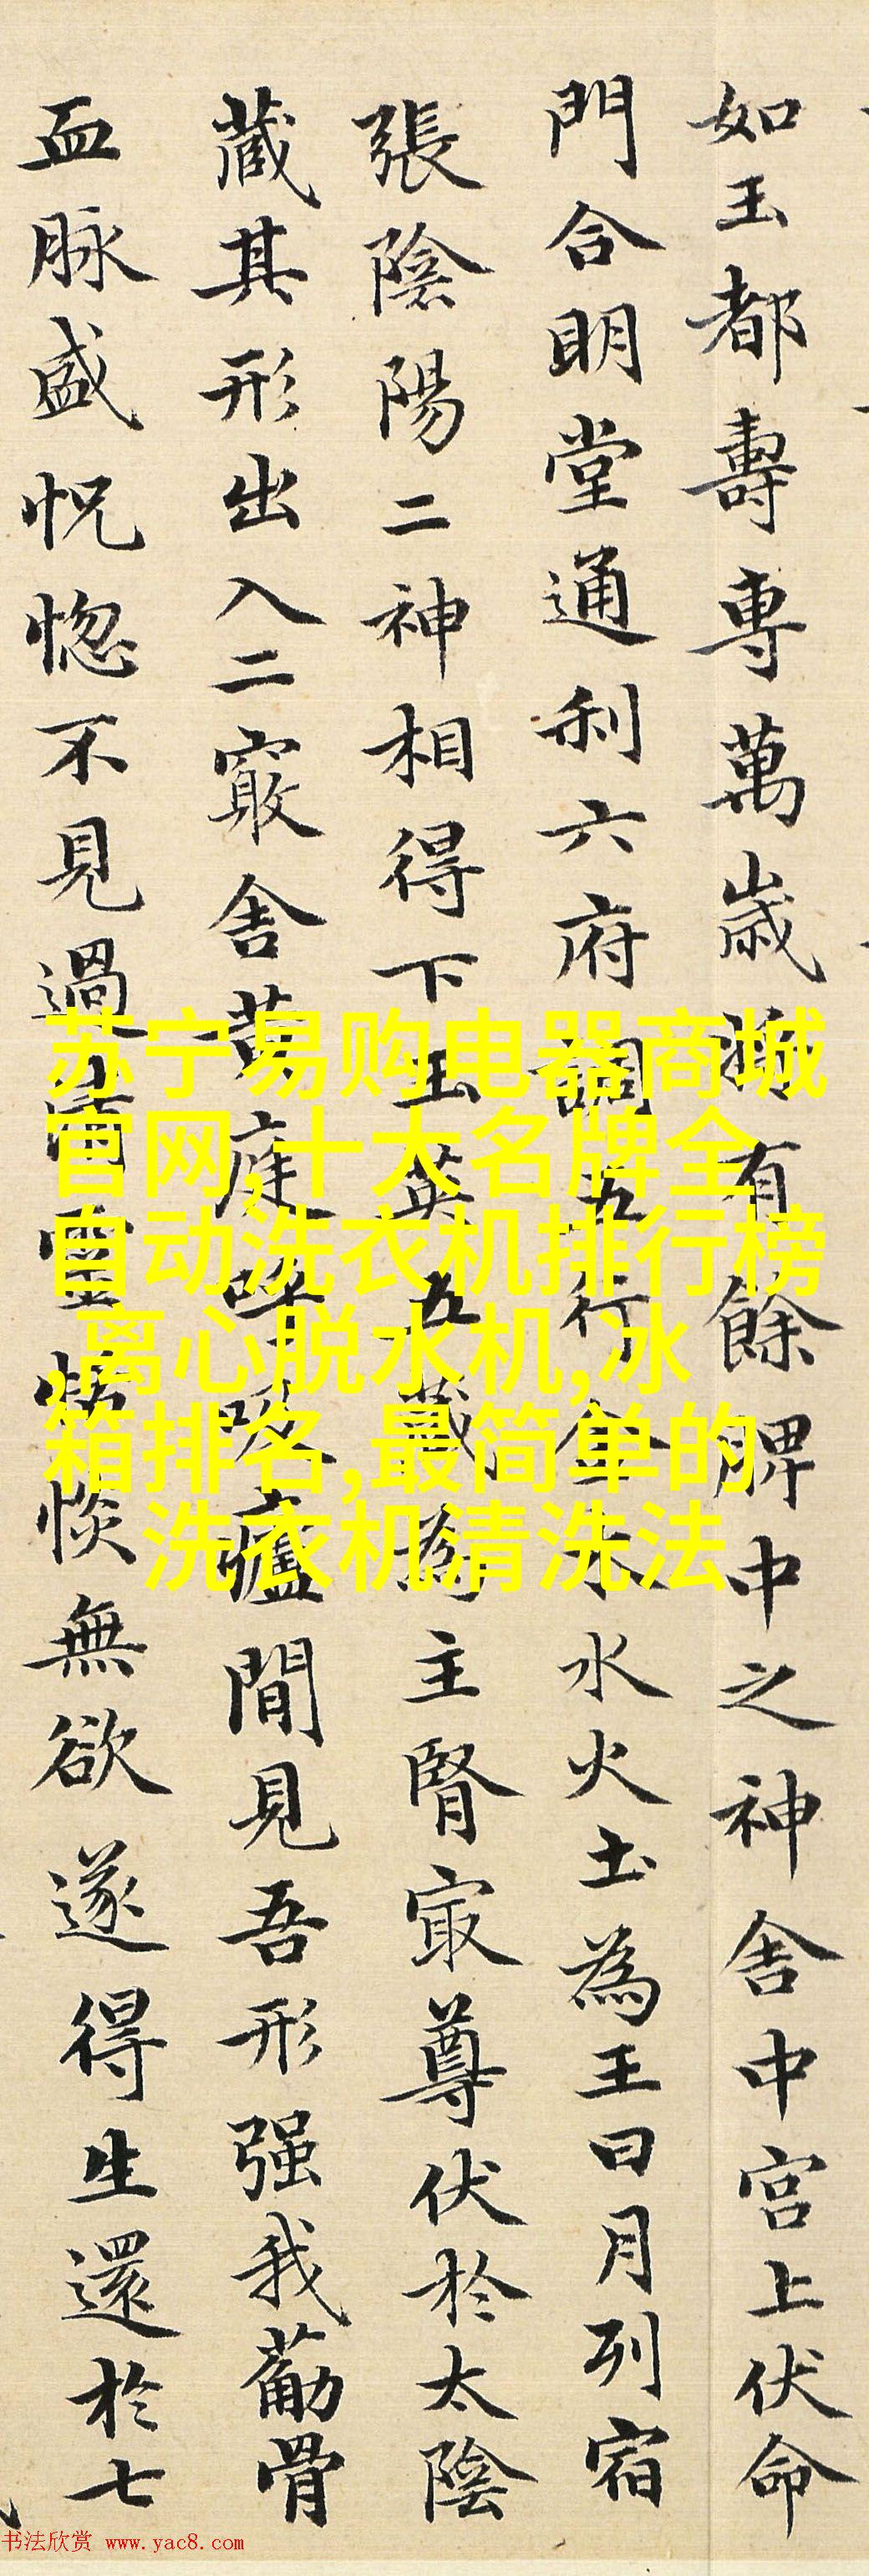 如玉都壽專萬歲將有餘脾中之神舍中宮上伏命
門合明堂通利六府調五行金木水火土為王日月列宿
張陰陽二神相得下玉英五藏為主腎寂尊伏於太陰
藏其形出入二竅舍黄庭呼吸廬間見吾形强我葡骨
血脉盛怳惚不見過清靈恬惔無欲遂得生還於七
苏宁易购电器商城
官网,十大名牌全
自动洗衣机排行榜
,离心脱水机,冰
箱排名,最简单的
洗衣机清洗法
书法欣赏 www.yac8.com